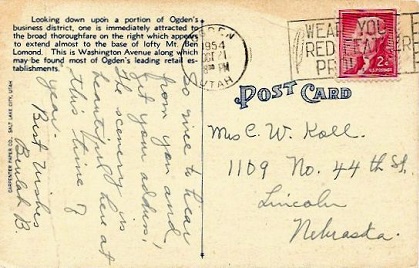 Looking down upon a portion of Ogden's
business district, one is immediately attracted to
the broad thoroughfare on the right which appears
to extend almost to the base of lofty Mt. Ben
Lomond. This is Washington Avenue along which
may be found most of Ogden's leading retail es-
tablishments.
CARPENTER PAPER CO., SALT LAKE CITY, UTAH
So nice to hear
from you and
get your address!
The scenery is
beautiful here at
this time of
year.
Best Wishes
Beulah B.
OGDEN
1954
OCT
UTAH
WEAR YOU
RED FEATHER
PRO
2¢
POST CARD
Mrs C. W. Koll.
1109 No. 44th St.
Lincoln
Nebraska.